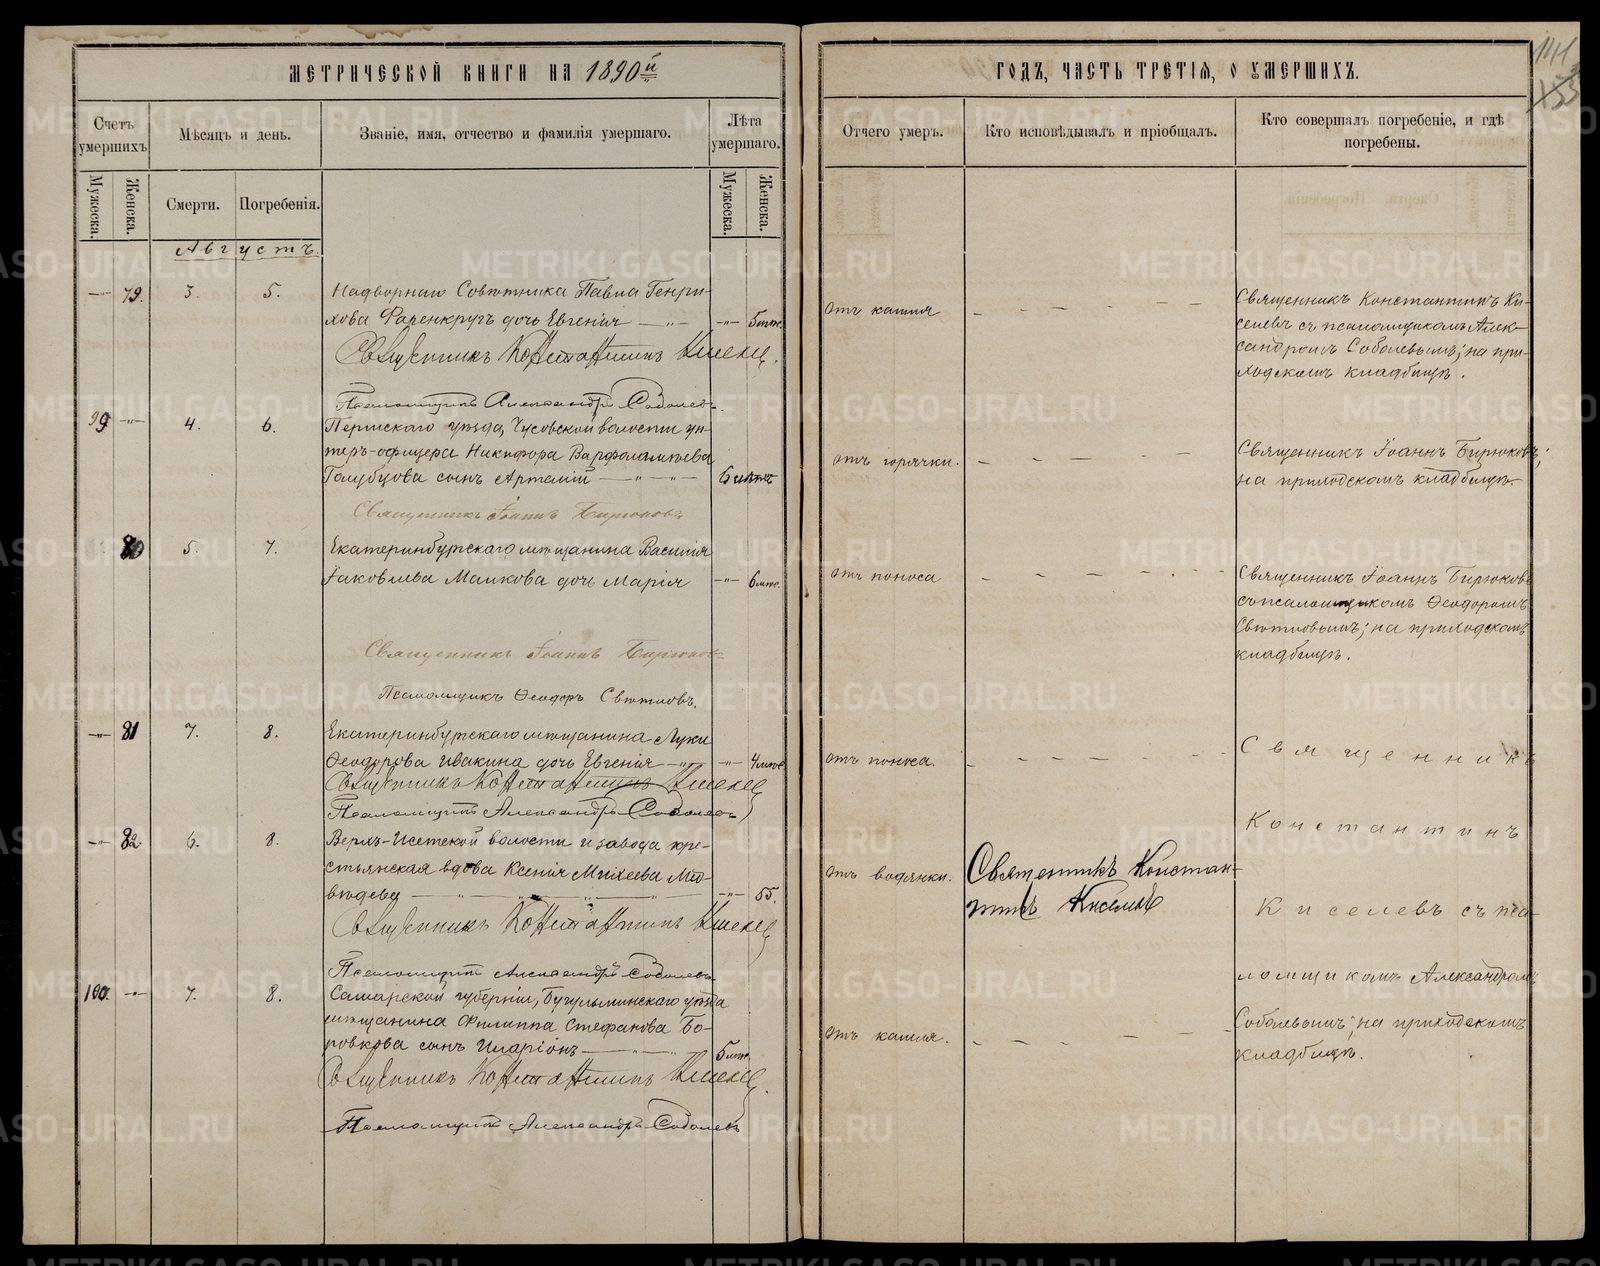 МЕТРИЧЕСКОЙ КНИГИ НА 1890й
Счетъ умершихъ
Мѣсяцъ и день.
Званіе, имя, отчество и фамилія умершаго.
Лѣта умершаго.
Мужеска.
Женска.
Смерти.
Погребенія.
Мужеска.
Женска.
Августъ.
—"— 79. 3. 5. Надворнаго Совѣтника Павла Генри-
хова Фаренкругъ дочь Евгенія —"— —"— 5 мѣс.
Священникъ Константинъ Киселев.
Псаломщикъ Александръ Соболевъ.
99 —"— 4. 6. Пермскаго уѣзда, Чусовской волости ун-
теръ-офицера Никифора Варфоламѣева
Голубцова сынъ Артемій —"—"—
Священникъ Іоаннъ Бирюковъ
80 5. 7. Екатеринбургскаго мѣщанина Василія
Іаковлева Маикова дочь Марія —"— 6 мѣс.
Священникъ Іоаннъ Бирюковъ
Псаломщикъ Ѳеодоръ Свѣтловъ.
—"— 81 7. 8. Екатеринбургскаго мѣщанина Луки
Ѳеодорова Ивакина дочь Евгенія —"— —"—
Священникъ Константинъ Киселев
Псаломщикъ Александръ Соболевъ
—"— 82. 6. 8. Верхъ-Исетской волости и завода кре-
стьянская вдова Ксенія Михеева Мед-
вѣдева —"—"—"— —"— 55.
Священникъ Константинъ Киселев
Псаломщикъ Александръ Соболевъ
100. —"— 7. 8. Самарской губерніи, Бугульминскаго уѣзда
мѣщанина Филиппа Стефанова Бо-
ровкова сынъ Иларіонъ —"—"— 5 мѣс.
Священникъ Константинъ Киселев.
Псаломщикъ Александръ Соболевъ
ГОДЪ, ЧАСТЬ ТРЕТІЯ, О УМЕРШИХЪ.
141
Отчего умеръ.
Кто исповѣдывалъ и пріобщалъ.
Кто совершалъ погребеніе, и гдѣ погребены.
отъ кашля
Священникъ Константинъ Ки-
селевъ съ псаломщикомъ Алек-
сандромъ Соболевымъ; на при-
ходскомъ кладбищѣ.
отъ горячки.
Священникъ Іоаннъ Бирюковъ;
на приходскомъ кладбищѣ.
отъ поноса
Священникъ Іоаннъ Бирюковъ
съ псаломщикомъ Ѳеодоромъ
Свѣтловымъ; на приходскомъ
кладбищѣ.
отъ поноса.
Священникъ
Константинъ
отъ водянки.
Священникъ Констан-
тинъ Киселевъ
Киселевъ съ пса-
ломщикомъ Александромъ
отъ кашля.
Соболевымъ; на приходскомъ
кладбищѣ.
METRIKI.GASO-URAL.RU